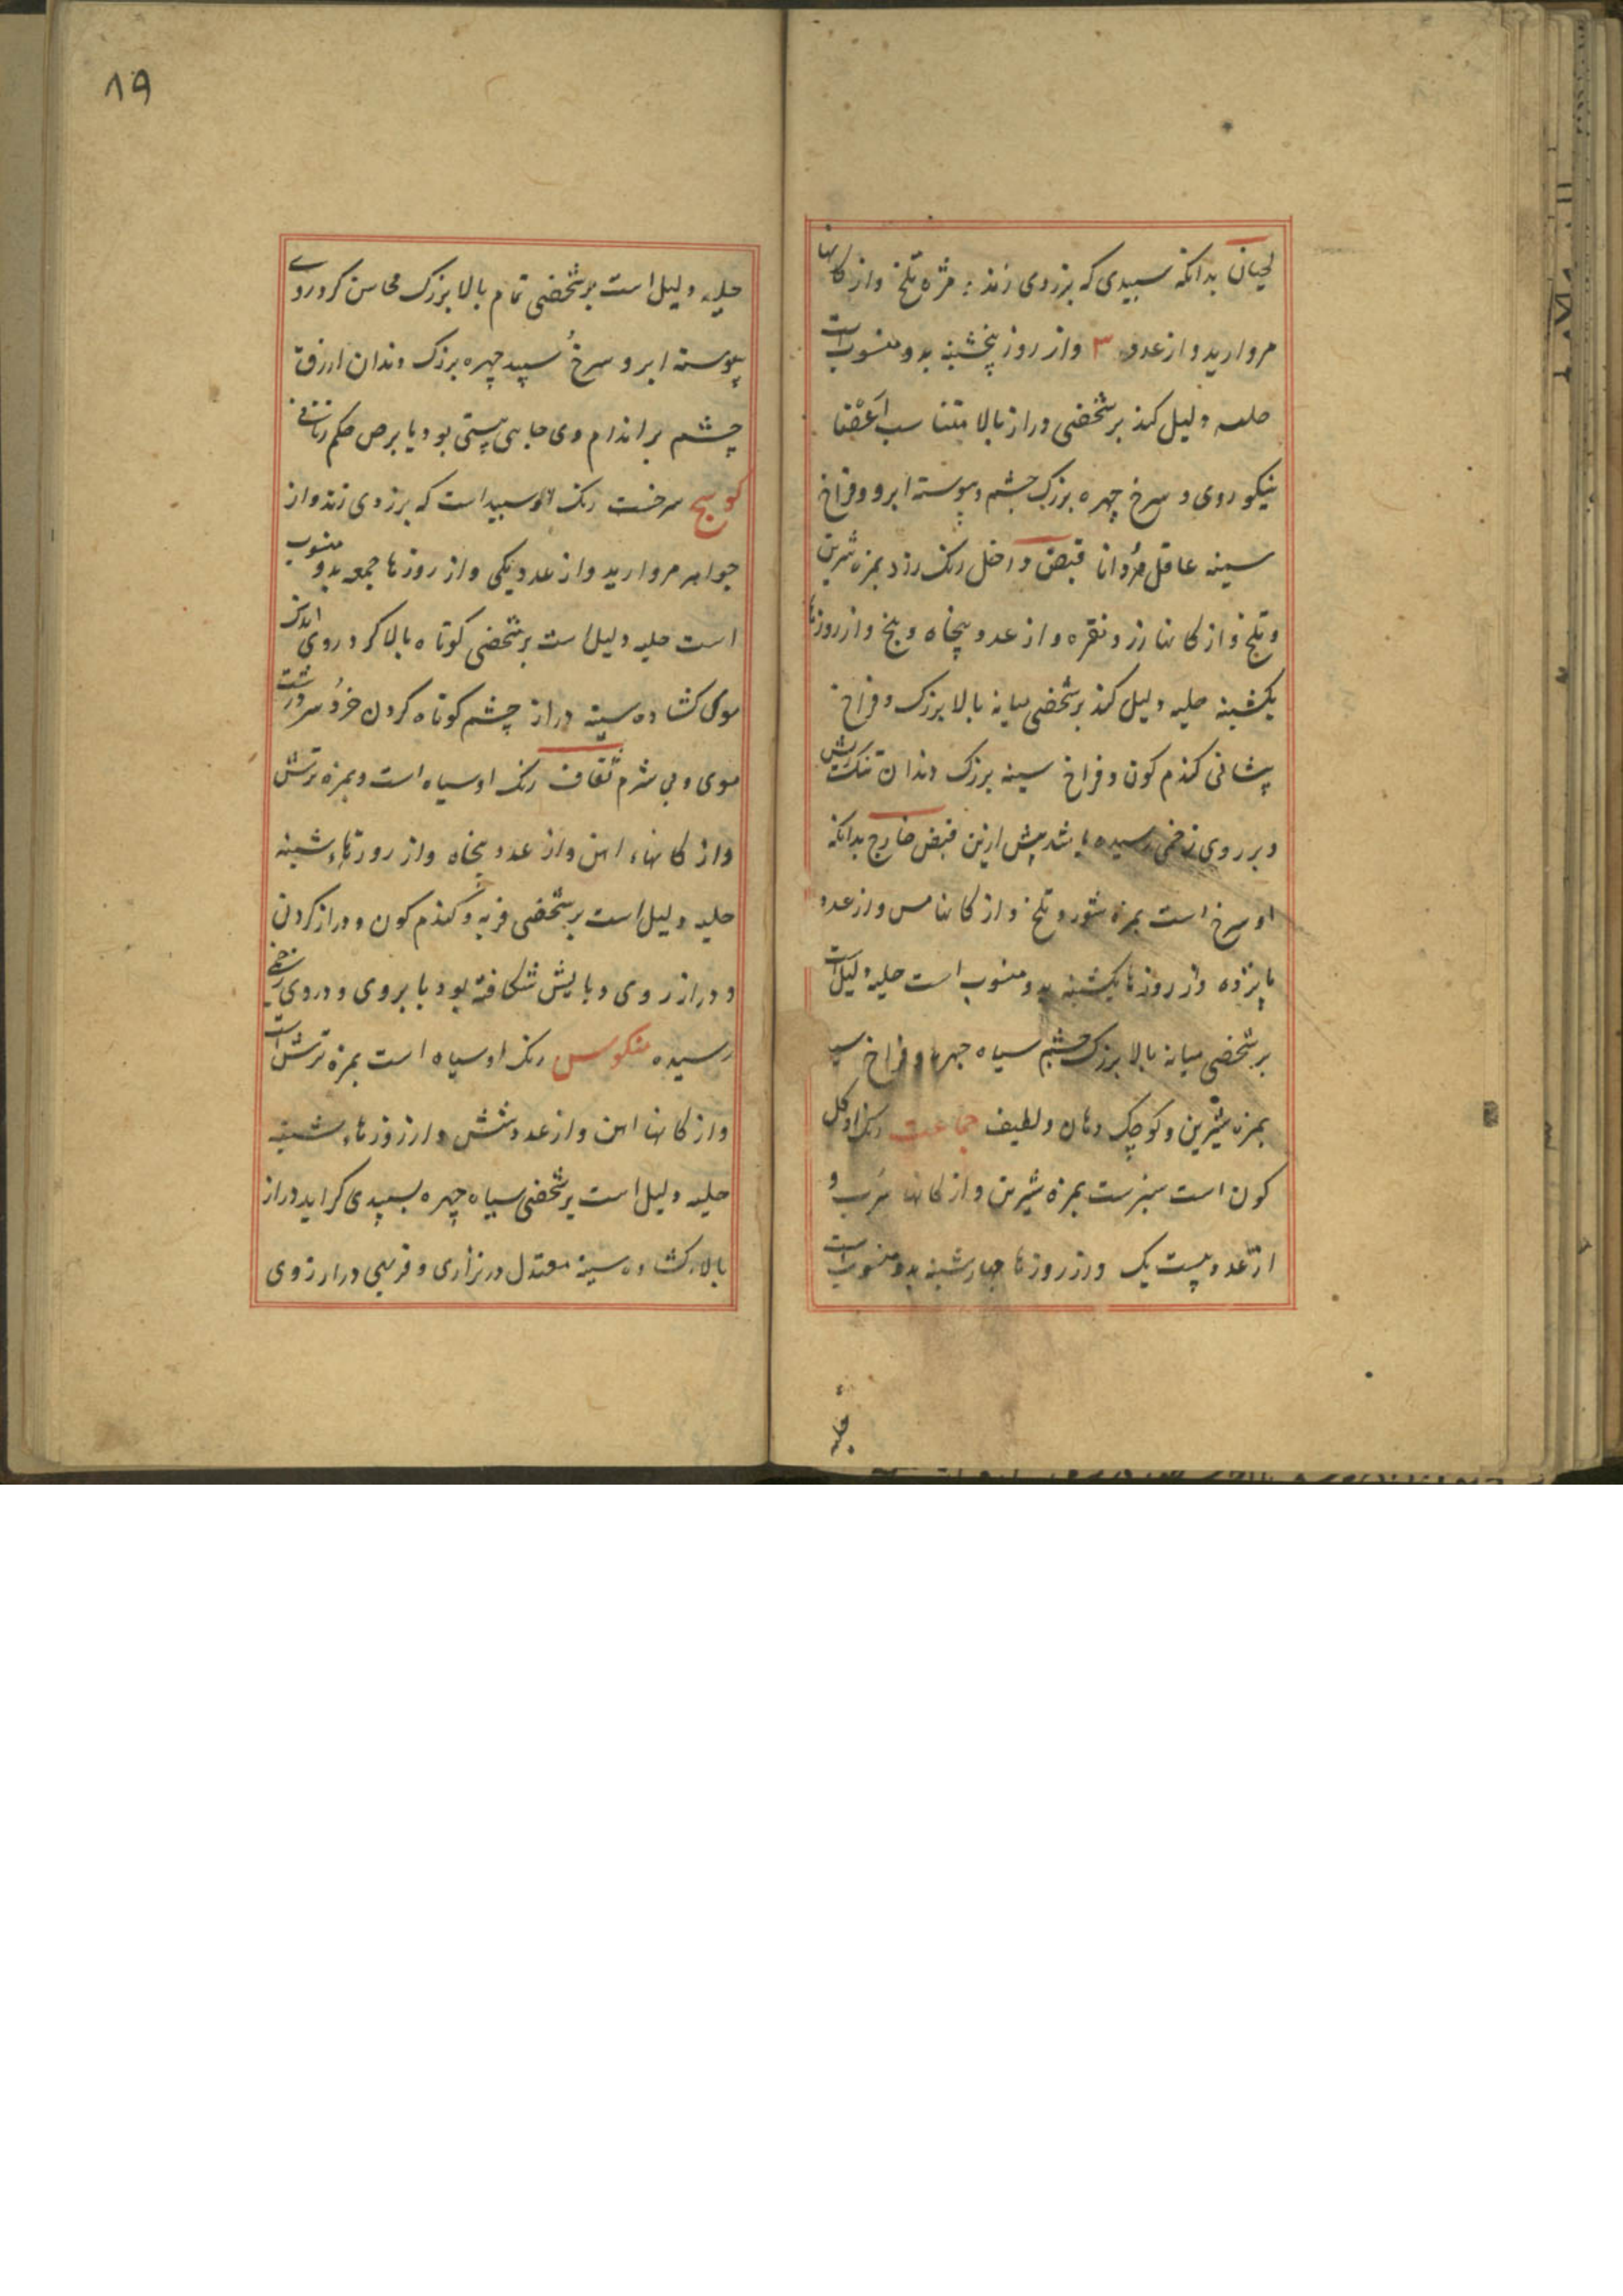 لحیان بدانکه سپیدی که بزردی زند بمزه تلخ و از کانها
مروارید و از عدد ۳ و از روز پنجشنبه بدو منسوبست
حلیه دلیل کند بر شخصی دراز بالا متناسب اَعْضا
نیکو روی و سرخ چهره بزرک چشم و پیوسته ابرو و فراخ
سینه عاقل و دانا قبض داخل رنک زرد بمزه شیرین
و تلخ و از کانها زر و نقره و از عدد پنجاه و پنج و از روزها
یکشنبه حلیه دلیل کند بر شخصی میانه بالا بزرک و فراخ
پشانی کندم کون و فراخ سینه بزرک دندان تنک ریش
و بر روی زخمی رسیده باشد پیش ازین قبض خارج بدانکه
او سرخ است بمزه شور و تلخ و از کانها مس و از عدد
پانزده و از روزها یکشنبه بدو منسوب است حلیه دلیل است
بر شخصی میانه بالا بزرک چشم سیاه چهره و فراخ
بمزه شیرین و کوچک دهان و لطیف جماعت رنک او کل
کون است سبزست بمزه شیرین و از کانها سُرب و
از عدد بیست یک و از روزها چهارشنبه بدو منسوب است
حلیه
۸۹
حلیه دلیل است بر شخصی تمام بالا بزرک محاسن کرد روی
پیوسته ابرو سرخ سپید چهره بزرک دندان ازرق
چشم بر اندام وی جابی پستی بود یا برص حکم
کوسج سرخست رنک او سپید است که بزردی زند و از
جواهر مروارید و از عدد یکی و از روزها جمعه بدو منسوب
است حلیه دلیل است بر شخصی کوتاه بالا کرد روی اندک
موی کشاده سینه دراز چشم کوتاه کردن خرد سر درشت
موی و بی شرم ثقاف رنک او سیاه است و بمزه ترش
و از کانها اهن و از عدد پنجاه و از روزها شنبه
حلیه دلیل است بر شخصی فربه و کندم کون و دراز کردن
و دراز روی و پایش شکافته بود یا بروی و در وی زخمی
رسیده منکوس رنک او سیاه است بمزه ترش است
و از کانها اهن و از عدد شش و از روزها شنبه
حلیه دلیل است بر شخصی سیاه چهره بسپیدی کراید دراز
بالا کشاده سینه معتدل در نزاری و فربهی دراز روی